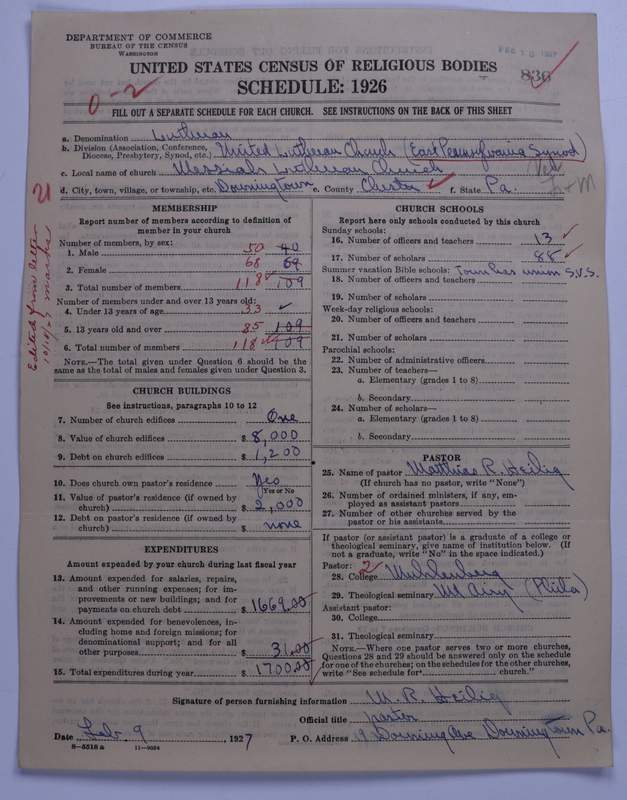 DEPARTMENT OF COMMERCE
BUREAU OF THE CENSUS
WASHINGTON
FEB 10 1927
836
UNITED STATES CENSUS OF RELIGIOUS BODIES
SCHEDULE: 1926
0-2
FILL OUT A SEPARATE SCHEDULE FOR EACH CHURCH. SEE INSTRUCTIONS ON THE BACK OF THIS SHEET
a. Denomination Lutheran
b. Division (Association, Conference, Diocese, Presbytery, Synod, etc.) United Lutheran Church (East Pennsylvania Synod)
c. Local name of church Messiah Lutheran Church
d. City, town, village, or township, etc. Downingtown e. County Chester f. State Pa.
21
Edited from letter
MEMBERSHIP
Report number of members according to definition of member in your church
Number of members, by sex:
1. Male 50 40
2. Female 68 69
3. Total number of members 118 109
Number of members under and over 13 years old:
4. Under 13 years of age 33
5. 13 years old and over 85 109
6. Total number of members 118 109
NOTE.—The total given under Question 6 should be the same as the total of males and females given under Question 3.
CHURCH BUILDINGS
See instructions, paragraphs 10 to 12
7. Number of church edifices One
8. Value of church edifices $ 8,000
9. Debt on church edifices $ 1,200
10. Does church own pastor's residence Yes
Yes or No
11. Value of pastor's residence (if owned by church) $ 2,000
12. Debt on pastor's residence (if owned by church) $ none
EXPENDITURES
Amount expended by your church during last fiscal year
13. Amount expended for salaries, repairs, and other running expenses; for improvements or new buildings; and for payments on church debt $ 1669.00
14. Amount expended for benevolences, including home and foreign missions; for denominational support; and for all other purposes $ 31.00
15. Total expenditures during year $ 1700.00
CHURCH SCHOOLS
Report here only schools conducted by this church
Sunday schools:
16. Number of officers and teachers 13
17. Number of scholars 88
Summer vacation Bible schools: Town has union S.V.S.
18. Number of officers and teachers
19. Number of scholars
Week-day religious schools:
20. Number of officers and teachers
21. Number of scholars
Parochial schools:
22. Number of administrative officers
23. Number of teachers—
a. Elementary (grades 1 to 8)
b. Secondary
24. Number of scholars—
a. Elementary (grades 1 to 8)
b. Secondary
PASTOR
25. Name of pastor Matthias R. Heilig
(If church has no pastor, write "None")
26. Number of ordained ministers, if any, employed as assistant pastors
27. Number of other churches served by the pastor or his assistants
If pastor (or assistant pastor) is a graduate of a college or theological seminary, give name of institution below. (If not a graduate, write "No" in the space indicated.)
Pastor: 2
28. College Muhlenberg
29. Theological seminary Mt Airy (Phila)
Assistant pastor:
30. College
31. Theological seminary
NOTE.—Where one pastor serves two or more churches, Questions 28 and 29 should be answered only on the schedule for one of the churches; on the schedules for the other churches, write "See schedule for church."
Signature of person furnishing information M. R. Heilig
Official title pastor
Date Feb. 9, 1927 P. O. Address Downing Ave Downingtown Pa.
8—5518 a 11—9054